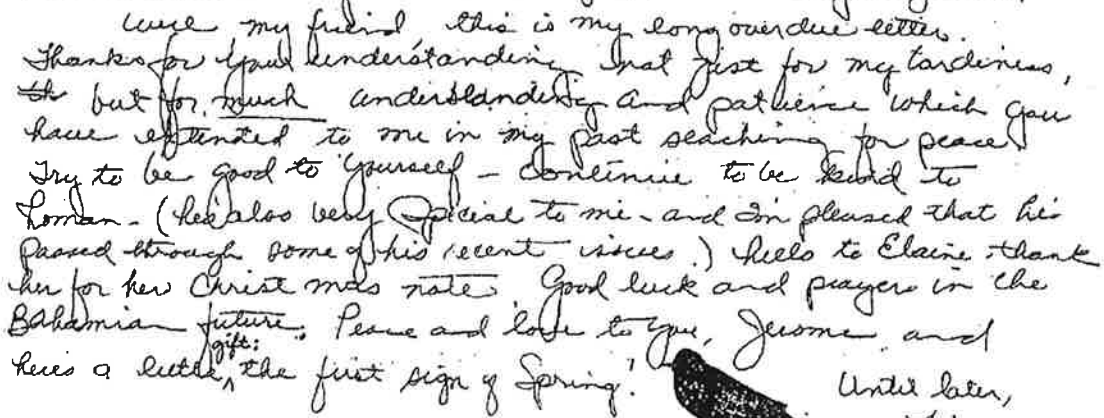 well, my friend, this is my long overdue letter.
Thanks for your understanding, not just for my tardiness,
but for much understanding and patience which you
have extented to me in my past seaching for peace.
Try to be good to yourself – continue to be kind to
Loman – (he's also very special to me – and I'm pleased that he's
passed through some of his recent issues.) hello to Elaine, thank
her for her Christmas note. Good luck and prayers in the
Bahamian future. Peace and love to you, Jerome, and
here's a little gift: the first sign of Spring!
Until later,